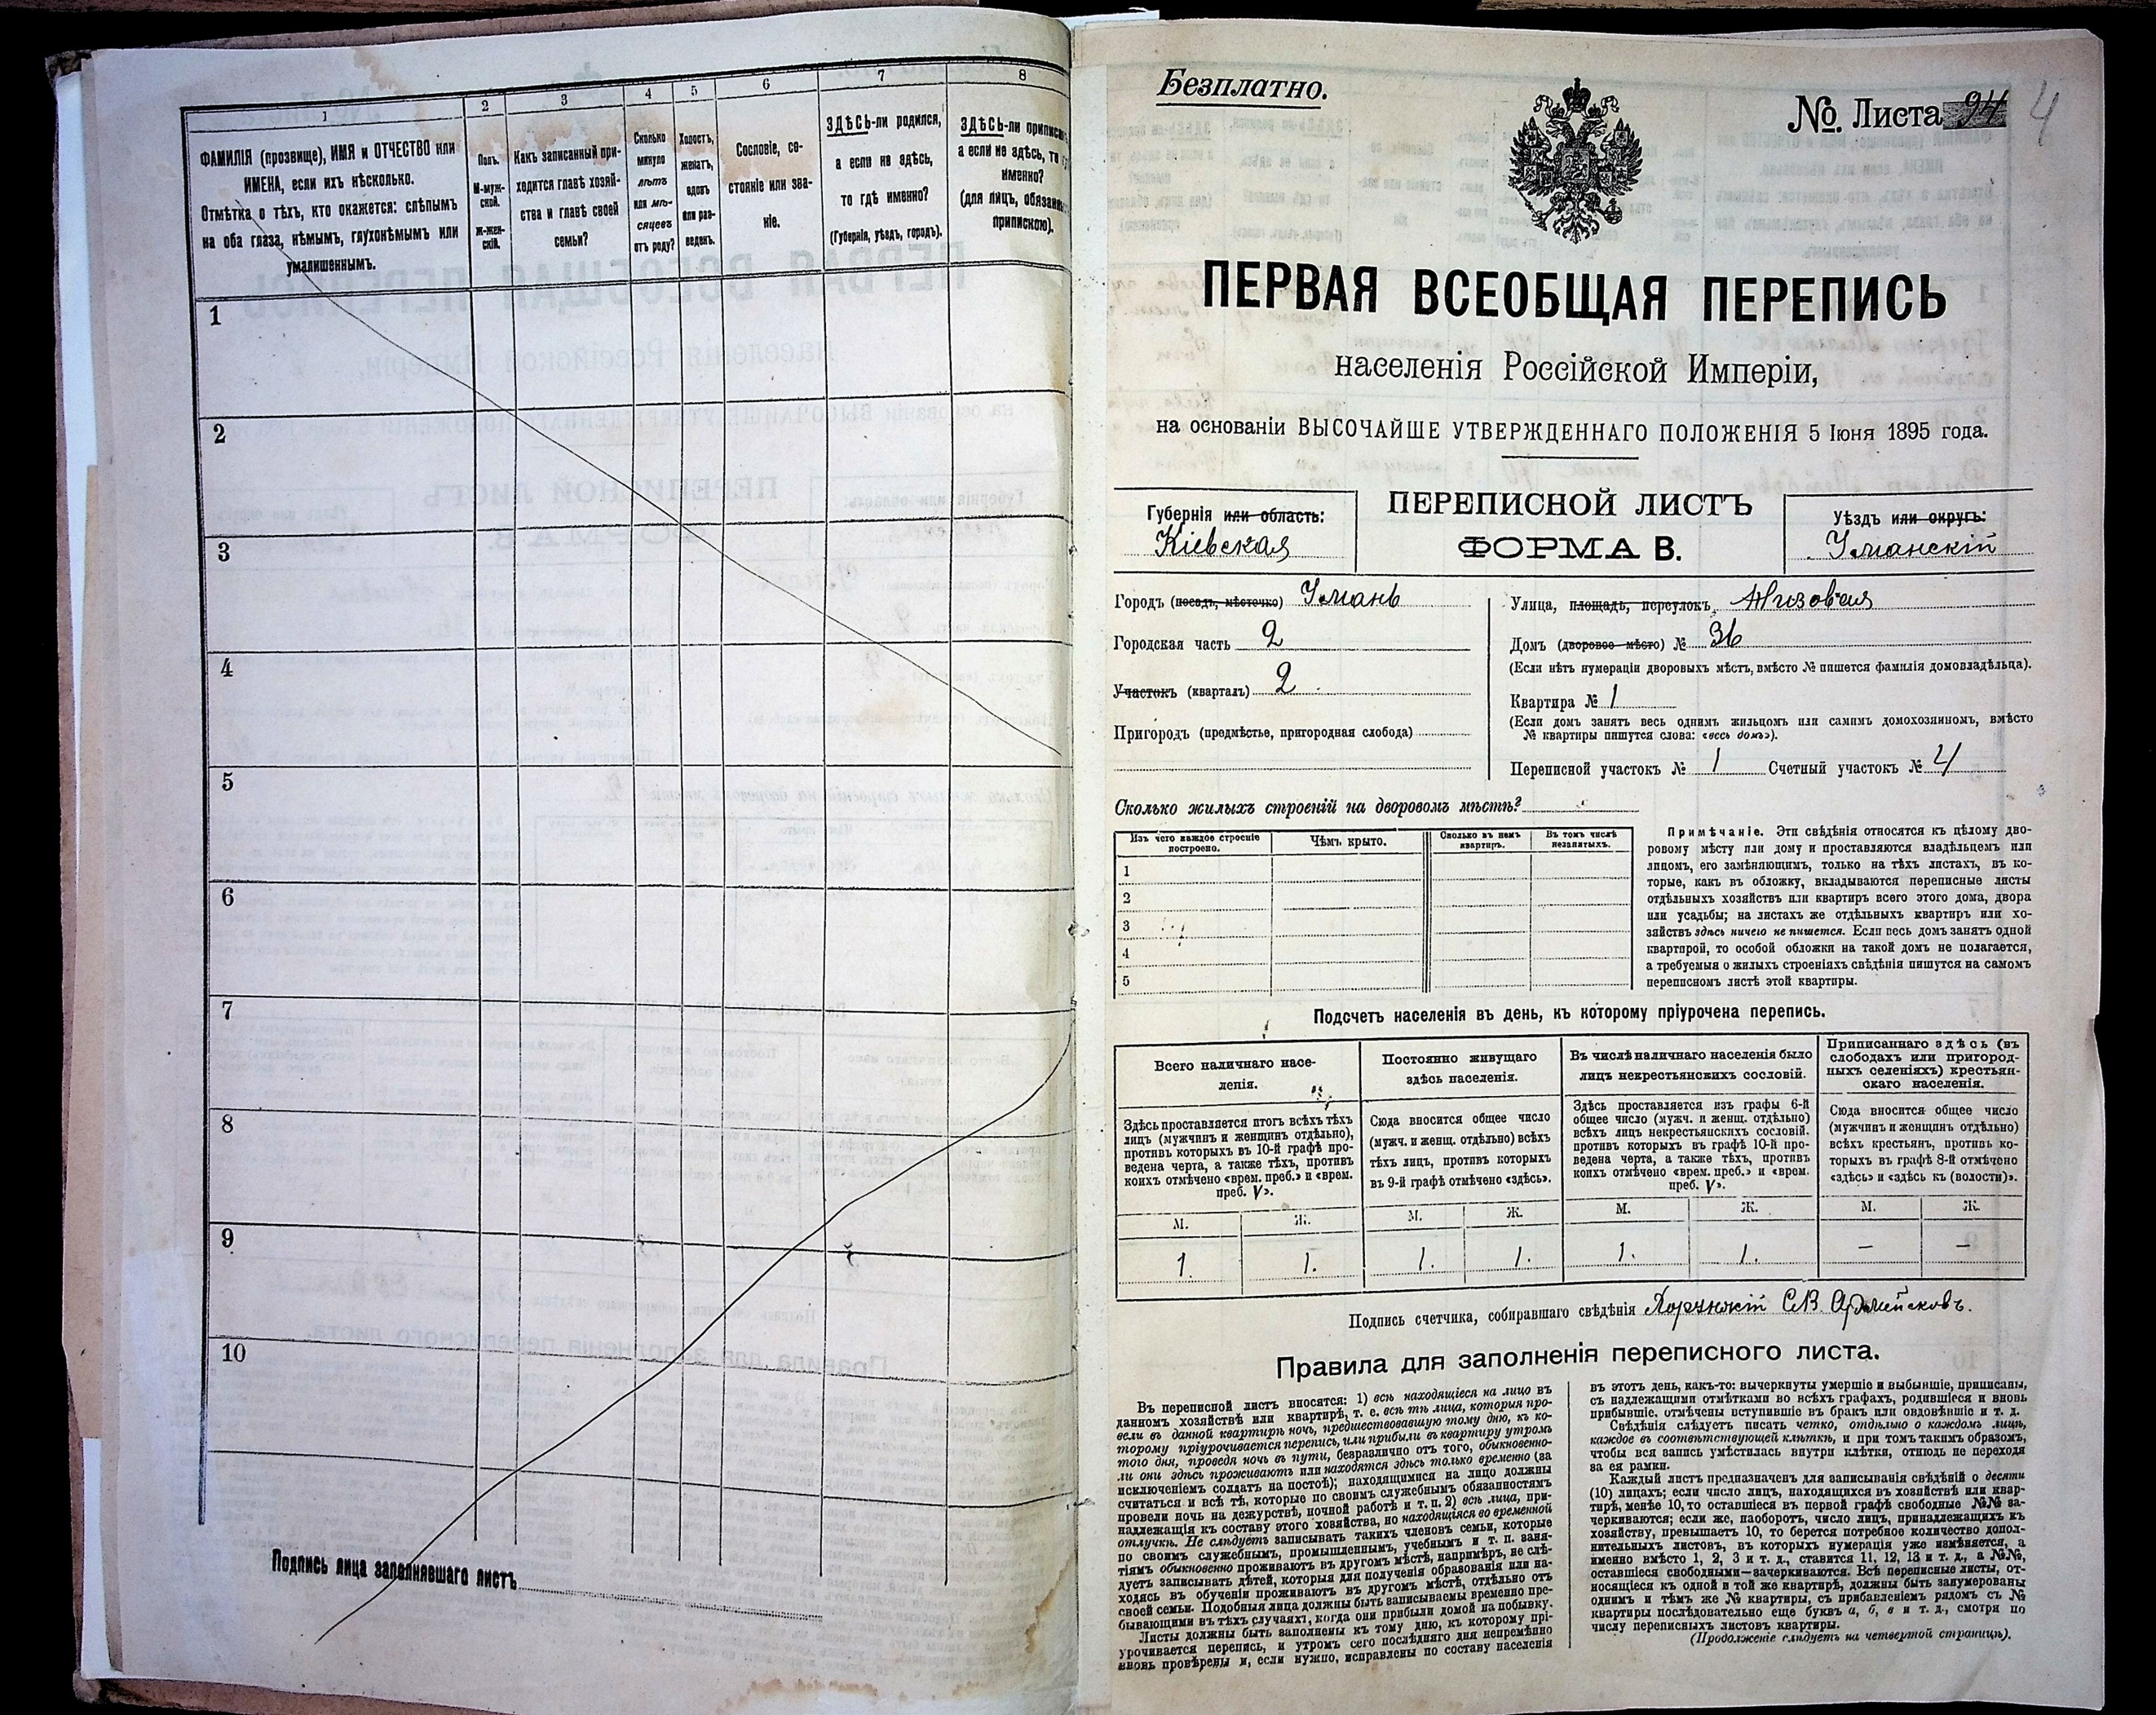 1
2
3
4
5
6
7
8
ФАМИЛІЯ (прозвище), ИМЯ и ОТЧЕСТВО или
ИМЕНА, если ихъ нѣсколько.
Отмѣтка о тѣхъ, кто окажется: слѣпымъ
на оба глаза, нѣмымъ, глухонѣмымъ или
умалишеннымъ.
Полъ.
М-муж-
ской.
Ж-жен-
скій.
Какъ записанный при-
ходится главѣ хозяй-
ства и главѣ своей
семьи?
Сколько
минуло
лѣтъ
или мѣ-
сяцевъ
отъ роду?
Холостъ,
женатъ,
вдовъ
или раз-
веденъ.
Сословіе, со-
стояніе или зва-
ніе.
ЗДѢСЬ-ли родился,
а если не здѣсь,
то гдѣ именно?
(Губернія, уѣздъ, городъ).
ЗДѢСЬ-ли приписа
а если не здѣсь, то
именно?
(для лицъ, обязан
припискою).
1
2
3
4
5
6
7
8
9
10
Подпись лица заполнявшаго листъ
Безплатно.
№ Листа 94
4
ПЕРВАЯ ВСЕОБЩАЯ ПЕРЕПИСЬ
населенія Россійской Имперіи,
на основаніи ВЫСОЧАЙШЕ УТВЕРЖДЕННАГО ПОЛОЖЕНІЯ 5 Іюня 1895 года.
Губернія или область:
Кіевская
ПЕРЕПИСНОЙ ЛИСТЪ
ФОРМА В.
Уѣздъ или округъ:
Уманскій
Городъ (посадъ, мѣстечко) Умань
Городская часть 2
Участокъ (кварталъ) 2
Пригородъ (предмѣстье, пригородная слобода)
Улица, площадь, переулокъ, Низовая
Домъ (дворовое мѣсто) № 36
(Если нѣтъ нумераціи дворовыхъ мѣстъ, вмѣсто № пишется фамилія домовладѣльца).
Квартира № 1
(Если домъ занятъ весь однимъ жильцомъ или самимъ домохозяиномъ, вмѣсто
№ квартиры пишутся слова: «весь домъ»).
Переписной участокъ № 1 Счетный участокъ № 4
Сколько жилыхъ строеній на дворовомъ мѣстѣ?
Изъ чего каждое строеніе
построено.
Чѣмъ крыто.
Сколько въ немъ
квартиръ.
Въ томъ числѣ
незанятыхъ.
1
2
3
4
5
Примѣчаніе. Эти свѣдѣнія относятся къ цѣлому дво-
ровому мѣсту или дому и проставляются владѣльцемъ или
лицомъ, его замѣняющимъ, только на тѣхъ листахъ, въ ко-
торые, какъ въ обложку, вкладываются переписные листы
отдѣльныхъ хозяйствъ или квартиръ всего этого дома, двора
или усадьбы; на листахъ же отдѣльныхъ квартиръ или хо-
зяйствъ здѣсь ничего не пишется. Если весь домъ занятъ одной
квартирой, то особой обложки на такой домъ не полагается,
а требуемыя о жилыхъ строеніяхъ свѣдѣнія пишутся на самомъ
переписномъ листѣ этой квартиры.
Подсчетъ населенія въ день, къ которому пріурочена перепись.
Всего наличнаго насе-
ленія.
Постоянно живущаго
здѣсь населенія.
Въ числѣ наличнаго населенія было
лицъ некрестьянскихъ сословій.
Приписаннаго здѣсь (въ
слободахъ или пригород-
ныхъ селеніяхъ) крестьян-
скаго населенія.
Здѣсь проставляется итогъ всѣхъ тѣхъ
лицъ (мужчинъ и женщинъ отдѣльно),
противъ которыхъ въ 10-й графѣ про-
ведена черта, а также тѣхъ, противъ
коихъ отмѣчено «врем. преб.» и «врем.
преб. V».
Сюда вносится общее число
(мужч. и женщ. отдѣльно) всѣхъ
тѣхъ лицъ, противъ которыхъ
въ 9-й графѣ отмѣчено «здѣсь».
Здѣсь проставляется изъ графы 6-й
общее число (мужч. и женщ. отдѣльно)
всѣхъ лицъ некрестьянскихъ сословій.
противъ которыхъ въ графѣ 10-й про-
ведена черта, а также тѣхъ, противъ
коихъ отмѣчено «врем. преб.» и «врем.
преб. V».
Сюда вносится общее число
(мужчинъ и женщинъ отдѣльно)
всѣхъ крестьян, противъ ко-
торыхъ въ графѣ 8-й отмѣчено
«здѣсь» и «здѣсь къ (волости)».
М. Ж. М. Ж. М. Ж. М. Ж.
1. 1. 1. 1. 1. 1. — —
Подпись счетчика, собиравшаго свѣдѣнія
Правила для заполненія переписного листа.
Въ переписной листъ вносятся: 1) всѣ находящіеся на лицо въ
данномъ хозяйствѣ или квартирѣ, т. е. всѣ тѣ лица, которыя про-
вели въ данной квартирѣ ночь, предшествовавшую тому дню, къ ко-
торому пріурочивается перепись, или прибыли въ квартиру утромъ
того дня, проведя ночь въ пути, безразлично отъ того, обыкновенно-
ли они здѣсь проживаютъ или находятся здѣсь только временно (за
исключеніемъ солдатъ на постоѣ); находящимися на лицо должны
считаться и всѣ тѣ, которые по своимъ служебнымъ обязанностямъ
провели ночь на дежурствѣ, ночной работѣ и т. п. 2) всѣ лица, при-
надлежащія къ составу этого хозяйства, но находящіяся во временной
отлучкѣ. Не слѣдуетъ записывать такихъ членовъ семьи, которые
по своимъ служебнымъ, промышленнымъ, учебнымъ и т. п. заня-
тіямъ обыкновенно проживаютъ въ другомъ мѣстѣ, напримѣръ, не слѣ-
дуетъ записывать дѣтей, которыя для полученія образованія или на-
ходясь въ обученіи проживаютъ въ другомъ мѣстѣ, отдѣльно отъ
своей семьи. Подобныя лица должны быть записываемы временно пре-
бывающими въ тѣхъ случаяхъ, когда они прибыли домой на побывку.
Листы должны быть заполнены къ тому дню, къ которому прі-
урочивается перепись, и утромъ сего послѣдняго дня непремѣнно
вновь провѣрены и, если нужно, исправлены по составу населенія
въ этотъ день, какъ-то: вычеркнуты умершіе и выбывшіе, приписаны,
съ надлежащими отмѣтками во всѣхъ графахъ, родившіеся и вновь
прибывшіе, отмѣчены вступившіе въ бракъ или овдовѣвшіе и т. д.
Свѣдѣнія слѣдуетъ писать четко, отдѣльно о каждомъ лицѣ,
каждое въ соотвѣтствующей клѣткѣ, и при томъ такимъ образомъ,
чтобы вся запись умѣстилась внутри клѣтки, отнюдь не переходя
за ея рамки.
Каждый листъ предназначенъ для записыванія свѣдѣній о десяти
(10) лицахъ; если число лицъ, находящихся въ хозяйствѣ или квар-
тирѣ, менѣе 10, то оставшіеся въ первой графѣ свободные №№ за-
черкиваются; если же, наоборотъ, число лицъ, принадлежащихъ къ
хозяйству, превышаетъ 10, то берется потребное количество допол-
нительныхъ листовъ, въ которыхъ нумерація уже измѣняется, а
именно вмѣсто 1, 2, 3 и т. д., ставится 11, 12, 13 и т. д., а №№,
оставшіеся свободными—зачеркиваются. Всѣ переписные листы, от-
носящіеся къ одной и той же квартирѣ, должны быть занумерованы
однимъ и тѣмъ же № квартиры, съ прибавленіемъ рядомъ съ №
квартиры послѣдовательно еще буквъ а, б, в и т. д., смотря по
числу переписныхъ листовъ квартиры.
(Продолженіе слѣдуетъ на четвертой страницѣ).